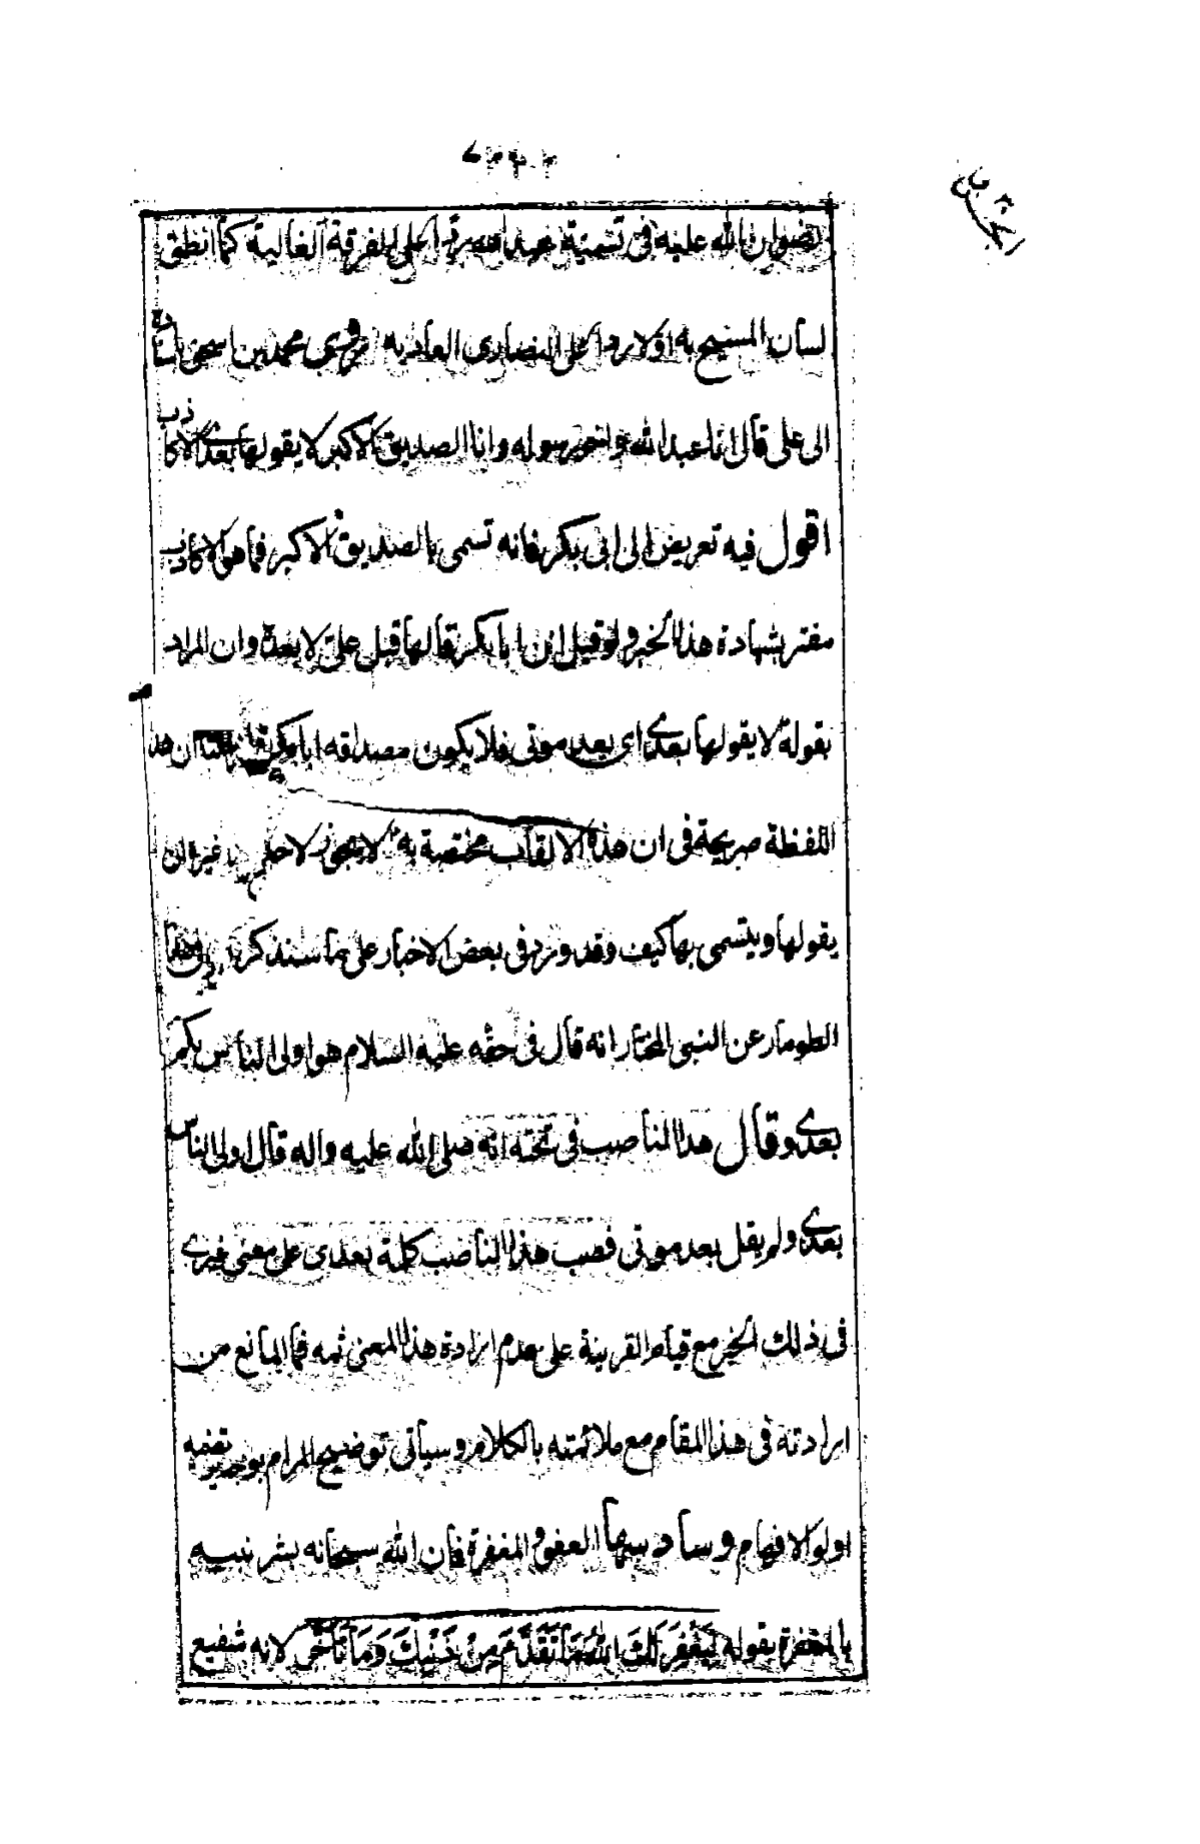 رضوان الله عليه في تسمية عبد الله ردا على الفرقة الغالية كما انطق
لسان المسيح به اولا ردا على النصارى العادية محمد بن اسحق باسناده
الى علي قال انا عبد الله واخو رسوله وانا الصديق الاكبر لا يقولها بعدى الا كاذب
اقول فيه تعريض الى ابي بكر فانه تسمى بالصديق الاكبر فما هو الا كاذب
مفتر بشهادة هذا الخبر ولو قيل ان ابا بكر قالها قبل علي لا بعده وان المراد
بقوله لا يقولها بعدى اى بعد موتى فلا يكون مصداقه ابا بكر قلنا ان هذه
اللفظة صريحة في ان هذه الالقاب مختصة به لا يجوز لاحد غيره ان
يقولها ويتسمى بها كيف وقد ورد في بعض الاخبار على ما سنذكر في هذا
الطومار عن النبي المختار انه قال في حقه عليه السلام هو اولى الناس بكم
بعدى وقال هذا الناصب في تحفته انه صلى الله عليه واله قال اولى الناس
بعدى ولم يقل بعد موتى فصب هذا الناصب كلمة بعدى على معنى غيرى
في ذلك الخبر مع قيام القرينة على عدم ارادة هذا المعنى ثمه فما المانع من
ارادته في هذا المقام مع ملائمته بالكلام وسياتي توضيح المرام بوجه يرتضيه
اولو الافهام وسادسها العفو والمغفرة فان الله سبحانه بشر نبيه
بالمغفرة بقوله لِيَغْفِرَ لَكَ اللهُ مَا تَقَدَّمَ مِنْ ذَنْبِكَ وَمَا تَأَخَّرَ لانه شفيع